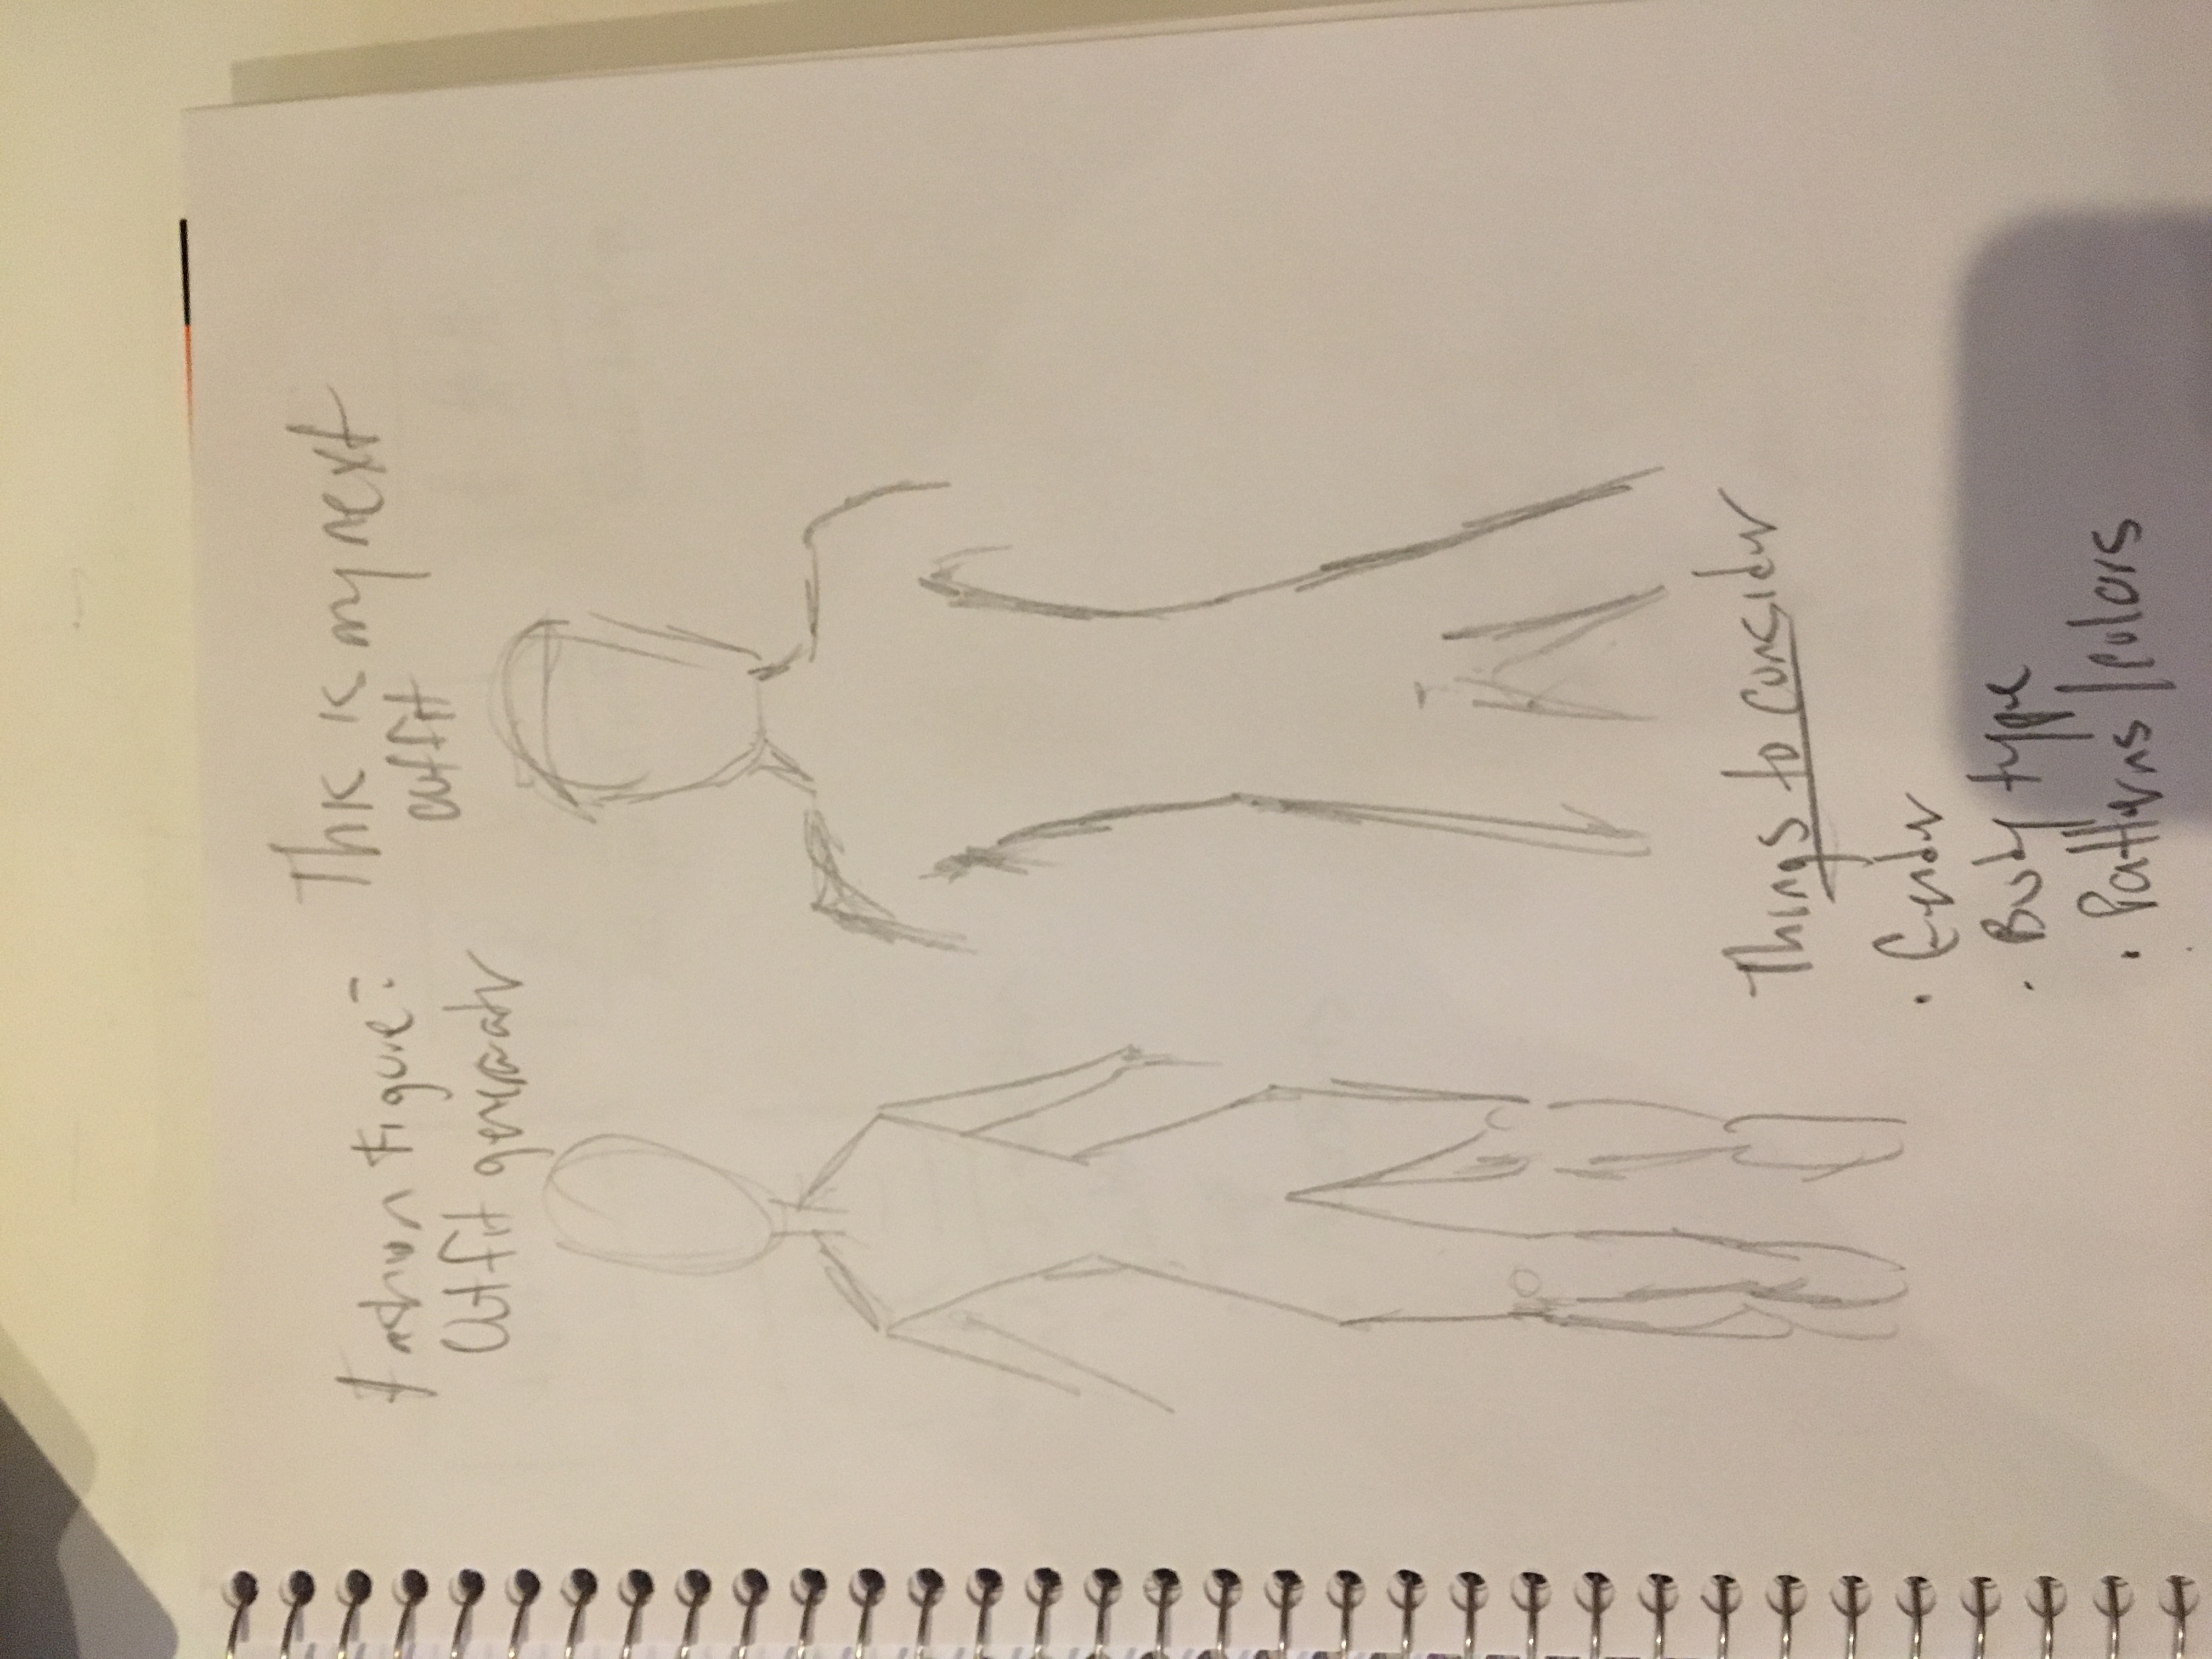 Fashion Figure:
Outfit generator
This is my next
outfit
Things to consider
· Gender
· Body type
· Patterns/colors